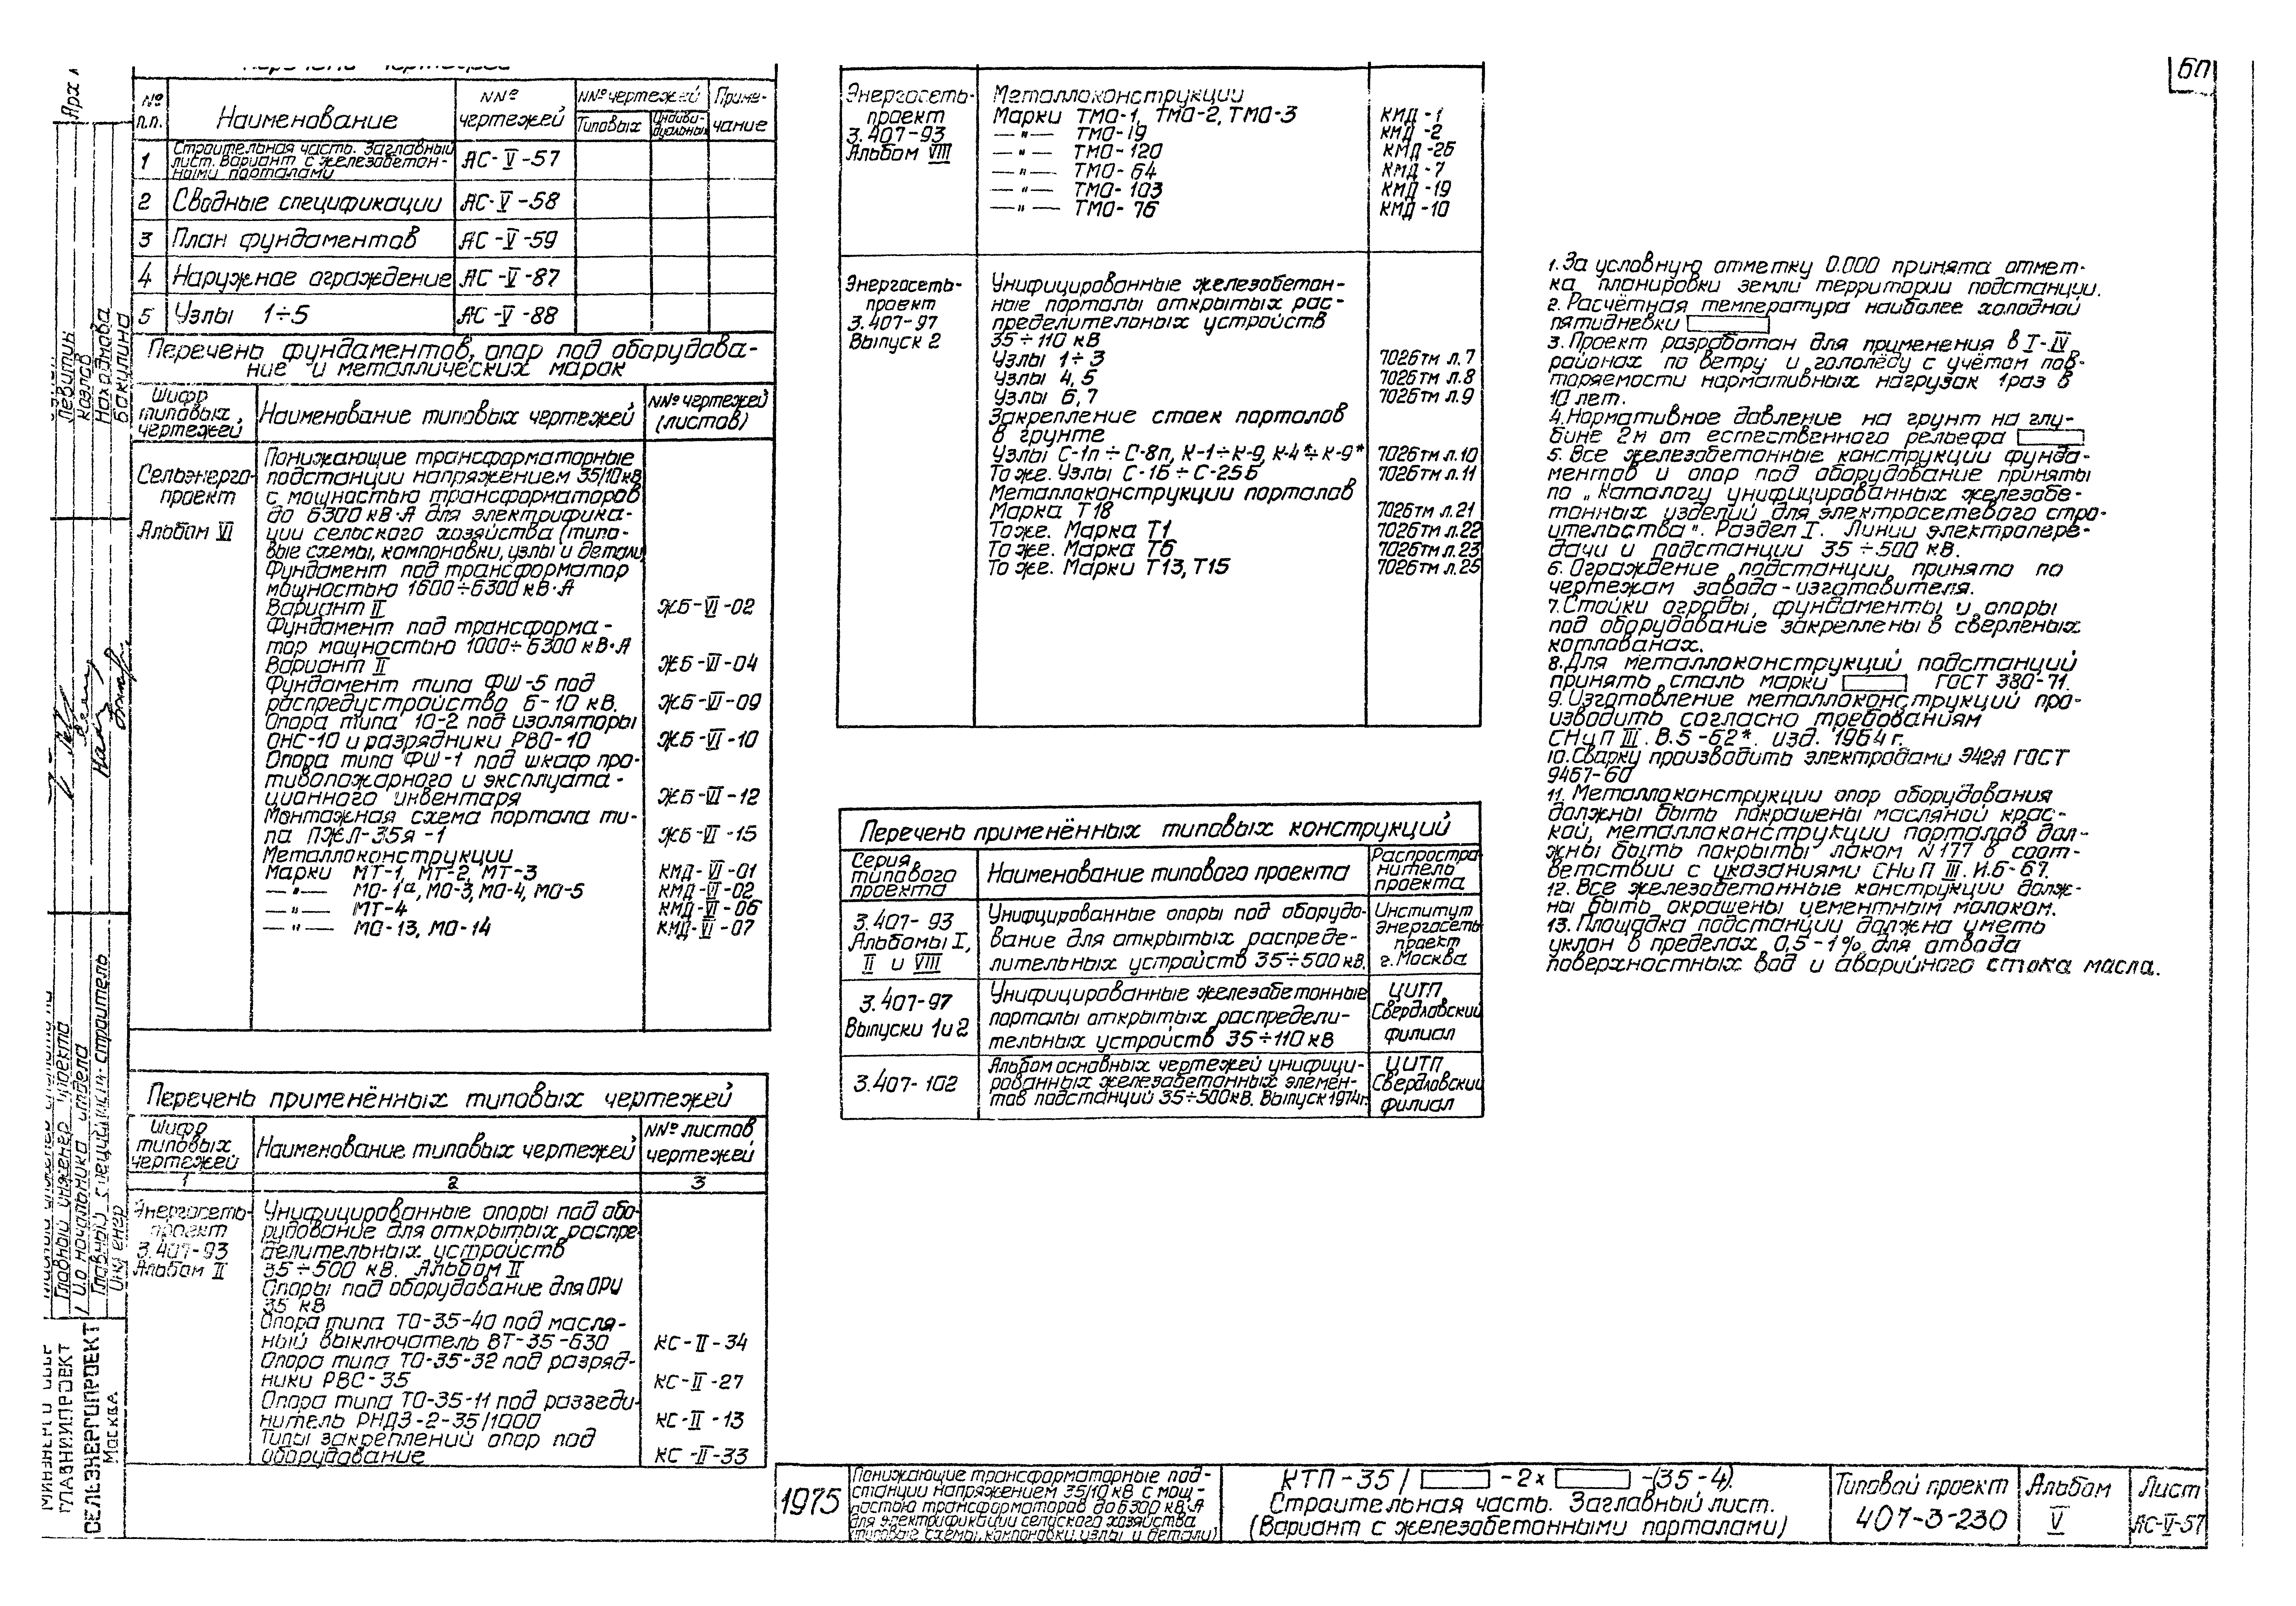 60
Перечень чертежей
№ п.п.
Наименование
NNº чертежей
NNº чертежей
Типовых
Индиви-
дуальных
Приме-
чание
1
Строительная часть. Заглавный
лист. Вариант с железобетон-
ными порталами
АС-V-57
2 Сводные спецификации АС-V-58
3 План фундаментов АС-V-59
4 Наружное ограждение АС-V-87
5 Узлы 1÷5 АС-V-88
Перечень фундаментов, опор под оборудова-
ние и металлических марок
Шифр
типовых
чертежей
Наименование типовых чертежей
NNº чертежей
(листов)
Сельэнерго-
проект
Альбом VI
Понижающие трансформаторные
подстанции напряжением 35/10кВ
с мощностью трансформаторов
до 6300 кВ·А для электрифика-
ции сельского хозяйства (типо-
вые схемы, компоновки, узлы и детали)
Фундамент под трансформатор
мощностью 1600÷6300 кВ·А
Вариант II ЖБ-VI-02
Фундамент под трансформа-
тор мощностью 1000÷6300 кВ·А
Вариант II ЖБ-VI-04
Фундамент типа ФШ-5 под
распредустройство 6-10 кВ. ЖБ-VI-09
Опора типа 10-2 под изоляторы
ОНС-10 и разрядники РВО-10 ЖБ-VI-10
Опора типа ФШ-1 под шкаф про-
тивопожарного и эксплуата-
ционного инвентаря ЖБ-VI-12
Монтажная схема портала ти-
па ПЖЛ-35я-1 ЖБ-VI-15
Металлоконструкции
Марки МТ-1, МТ-2, МТ-3 КМД-VI-01
—"— МО-1а, МО-3, МО-4, МО-5 КМД-VI-02
—"— МТ-4 КМД-VI-06
—"— МО-13, МО-14 КМД-VI-07
Перечень применённых типовых чертежей
Шифр
типовых
чертежей
Наименование типовых чертежей
NNº листов
чертежей
1 2 3
Энергосеть-
проект
3.407-93
Альбом II
Унифицированные опоры под обо-
рудование для открытых распре-
делительных устройств
35÷500 кВ. Альбом II
Опоры под оборудование для ОРУ
35 кВ
Опора типа ТО-35-40 под масля-
ный выключатель ВТ-35-630 КС-II-34
Опора типа ТО-35-32 под разряд-
ники РВС-35 КС-II-27
Опора типа ТО-35-11 под разъеди-
нитель РНДЗ-2-35/1000 КС-II-13
Типы закреплений опор под
оборудование КС-II-33
Энергосеть-
проект
3.407-93
Альбом VIII
Металлоконструкции
Марки ТМО-1, ТМО-2, ТМО-3 КМД-1
—"— ТМО-19 КМД-2
—"— ТМО-120 КМД-26
—"— ТМО-64 КМД-7
—"— ТМО-103 КМД-19
—"— ТМО-76 КМД-10
Энергосеть-
проект
3.407-97
Выпуск 2
Унифицированные железобетон-
ные порталы открытых рас-
пределительных устройств
35÷110 кВ
Узлы 1÷3 7026тм л.7
Узлы 4,5 7026тм л.8
Узлы 6,7 7026тм л.9
Закрепление стоек порталов
в грунте
Узлы С-1п÷С-8п, К-1÷К-9, К-4*÷К-9* 7026тм л.10
То же. Узлы С-1б÷С-25б 7026тм л.11
Металлоконструкции порталов
Марка Т18 7026тм л.21
То же. Марка Т1 7026тм л.22
То же. Марка Т6 7026тм л.23
То же. Марки Т13, Т15 7026тм л.25
Перечень применённых типовых конструкций
Серия
типового
проекта
Наименование типового проекта
Распростра-
нитель
проекта
3.407-93
Альбомы I,
II и VIII
Унифицированные опоры под оборудо-
вание для открытых распреде-
лительных устройств 35÷500 кВ.
Институт
Энергосеть-
проект
г.Москва
3.407-97
Выпуски 1и2
Унифицированные железобетонные
порталы открытых распредели-
тельных устройств 35÷110 кВ
ЦИТП
Свердловский
филиал
3.407-102
Альбом основных чертежей унифици-
рованных железобетонных элемен-
тов подстанций 35÷500кВ. Выпуск 1974г.
ЦИТП
Свердловский
филиал
1. За условную отметку 0.000 принята отмет-
ка планировки земли территории подстанции.
2. Расчётная температура наиболее холодной
пятидневки
3. Проект разработан для применения в I-IV
районах по ветру и гололёду с учётом пов-
торяемости нормативных нагрузок 1раз в
10 лет.
4. Нормативное давление на грунт на глу-
бине 2м от естественного рельефа
5. Все железобетонные конструкции фунда-
ментов и опор под оборудование приняты
по „Каталогу унифицированных железобе-
тонных изделий для электросетевого стро-
ительства". Раздел I. Линии электропере-
дачи и подстанции 35÷500 кВ.
6. Ограждение подстанции принято по
чертежам завода-изготовителя.
7. Стойки ограды, фундаменты и опоры
под оборудование закреплены в сверленых
котлованах.
8. Для металлоконструкций подстанций
принять сталь марки ГОСТ 380-71.
9. Изготовление металлоконструкций про-
изводить согласно требованиям
СНиП III. В.5-62*. изд. 1964г.
10. Сварку производить электродами Э42А ГОСТ
9467-60
11. Металлоконструкции опор оборудования
должны быть покрашены масляной крас-
кой, металлоконструкции порталов дол-
жны быть покрыты лаком №177 в соот-
ветствии с указаниями СНиП III. И.6-67.
12. Все железобетонные конструкции долж-
ны быть окрашены цементным молоком.
13. Площадка подстанции должна иметь
уклон в пределах 0,5-1% для отвода
поверхностных вод и аварийного стока масла.
Арх
Левитин
Козлов
Находнова
Бакулина
Главный инженер проекта
И.о. начальника отдела
Главный специалист-строитель
Инженер
ГЛАВНИИПРОЕКТ
СЕЛЬЭНЕРГОПРОЕКТ
Москва
1975
Понижающие трансформаторные под-
станции напряжением 35/10 кВ с мощ-
ностью трансформаторов до 6300 кВ·А
для электрификации сельского хозяйства
(типовые схемы, компоновки, узлы и детали)
КТП-35/ -2х -(35-4).
Строительная часть. Заглавный лист.
(Вариант с железобетонными порталами)
Типовой проект
407-3-230
Альбом
V
Лист
АС-V-57